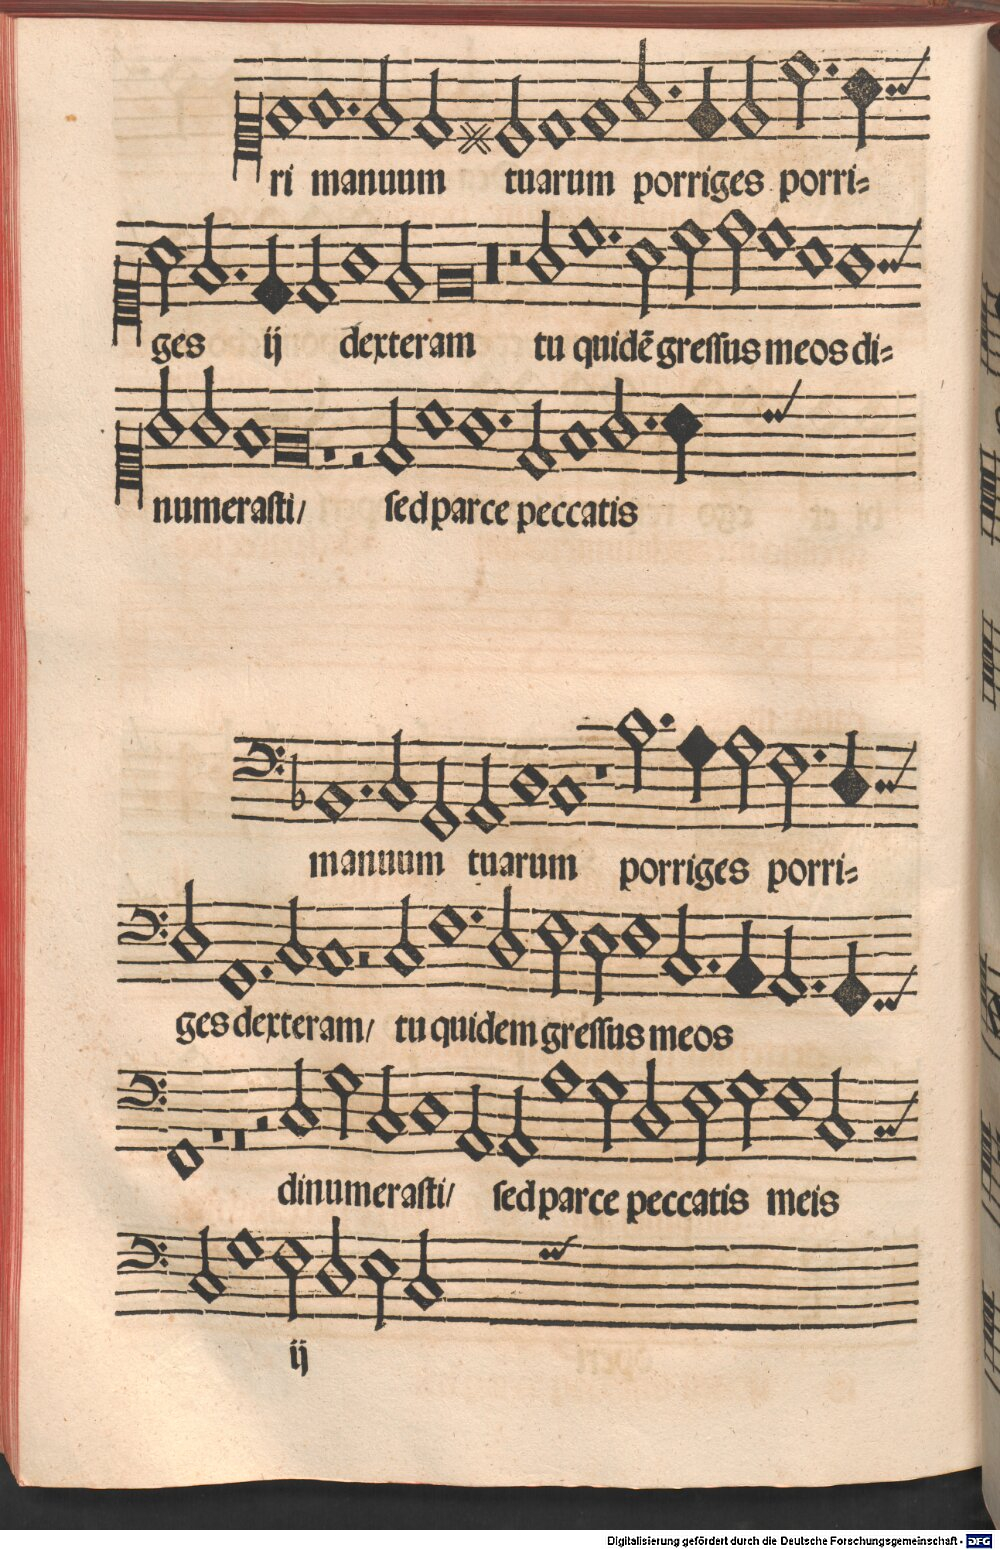 ri manuum tuarum porriges porri=
ges ij dexteram tu quidē gressus meos di=
numerasti/ sed parce peccatis
manuum tuarum porriges porri=
ges dexteram/ tu quidem gressus meos
dinumerasti/ sed parce peccatis meis
ij
Digitalisierung gefördert durch die Deutsche Forschungsgemeinschaft - DFG